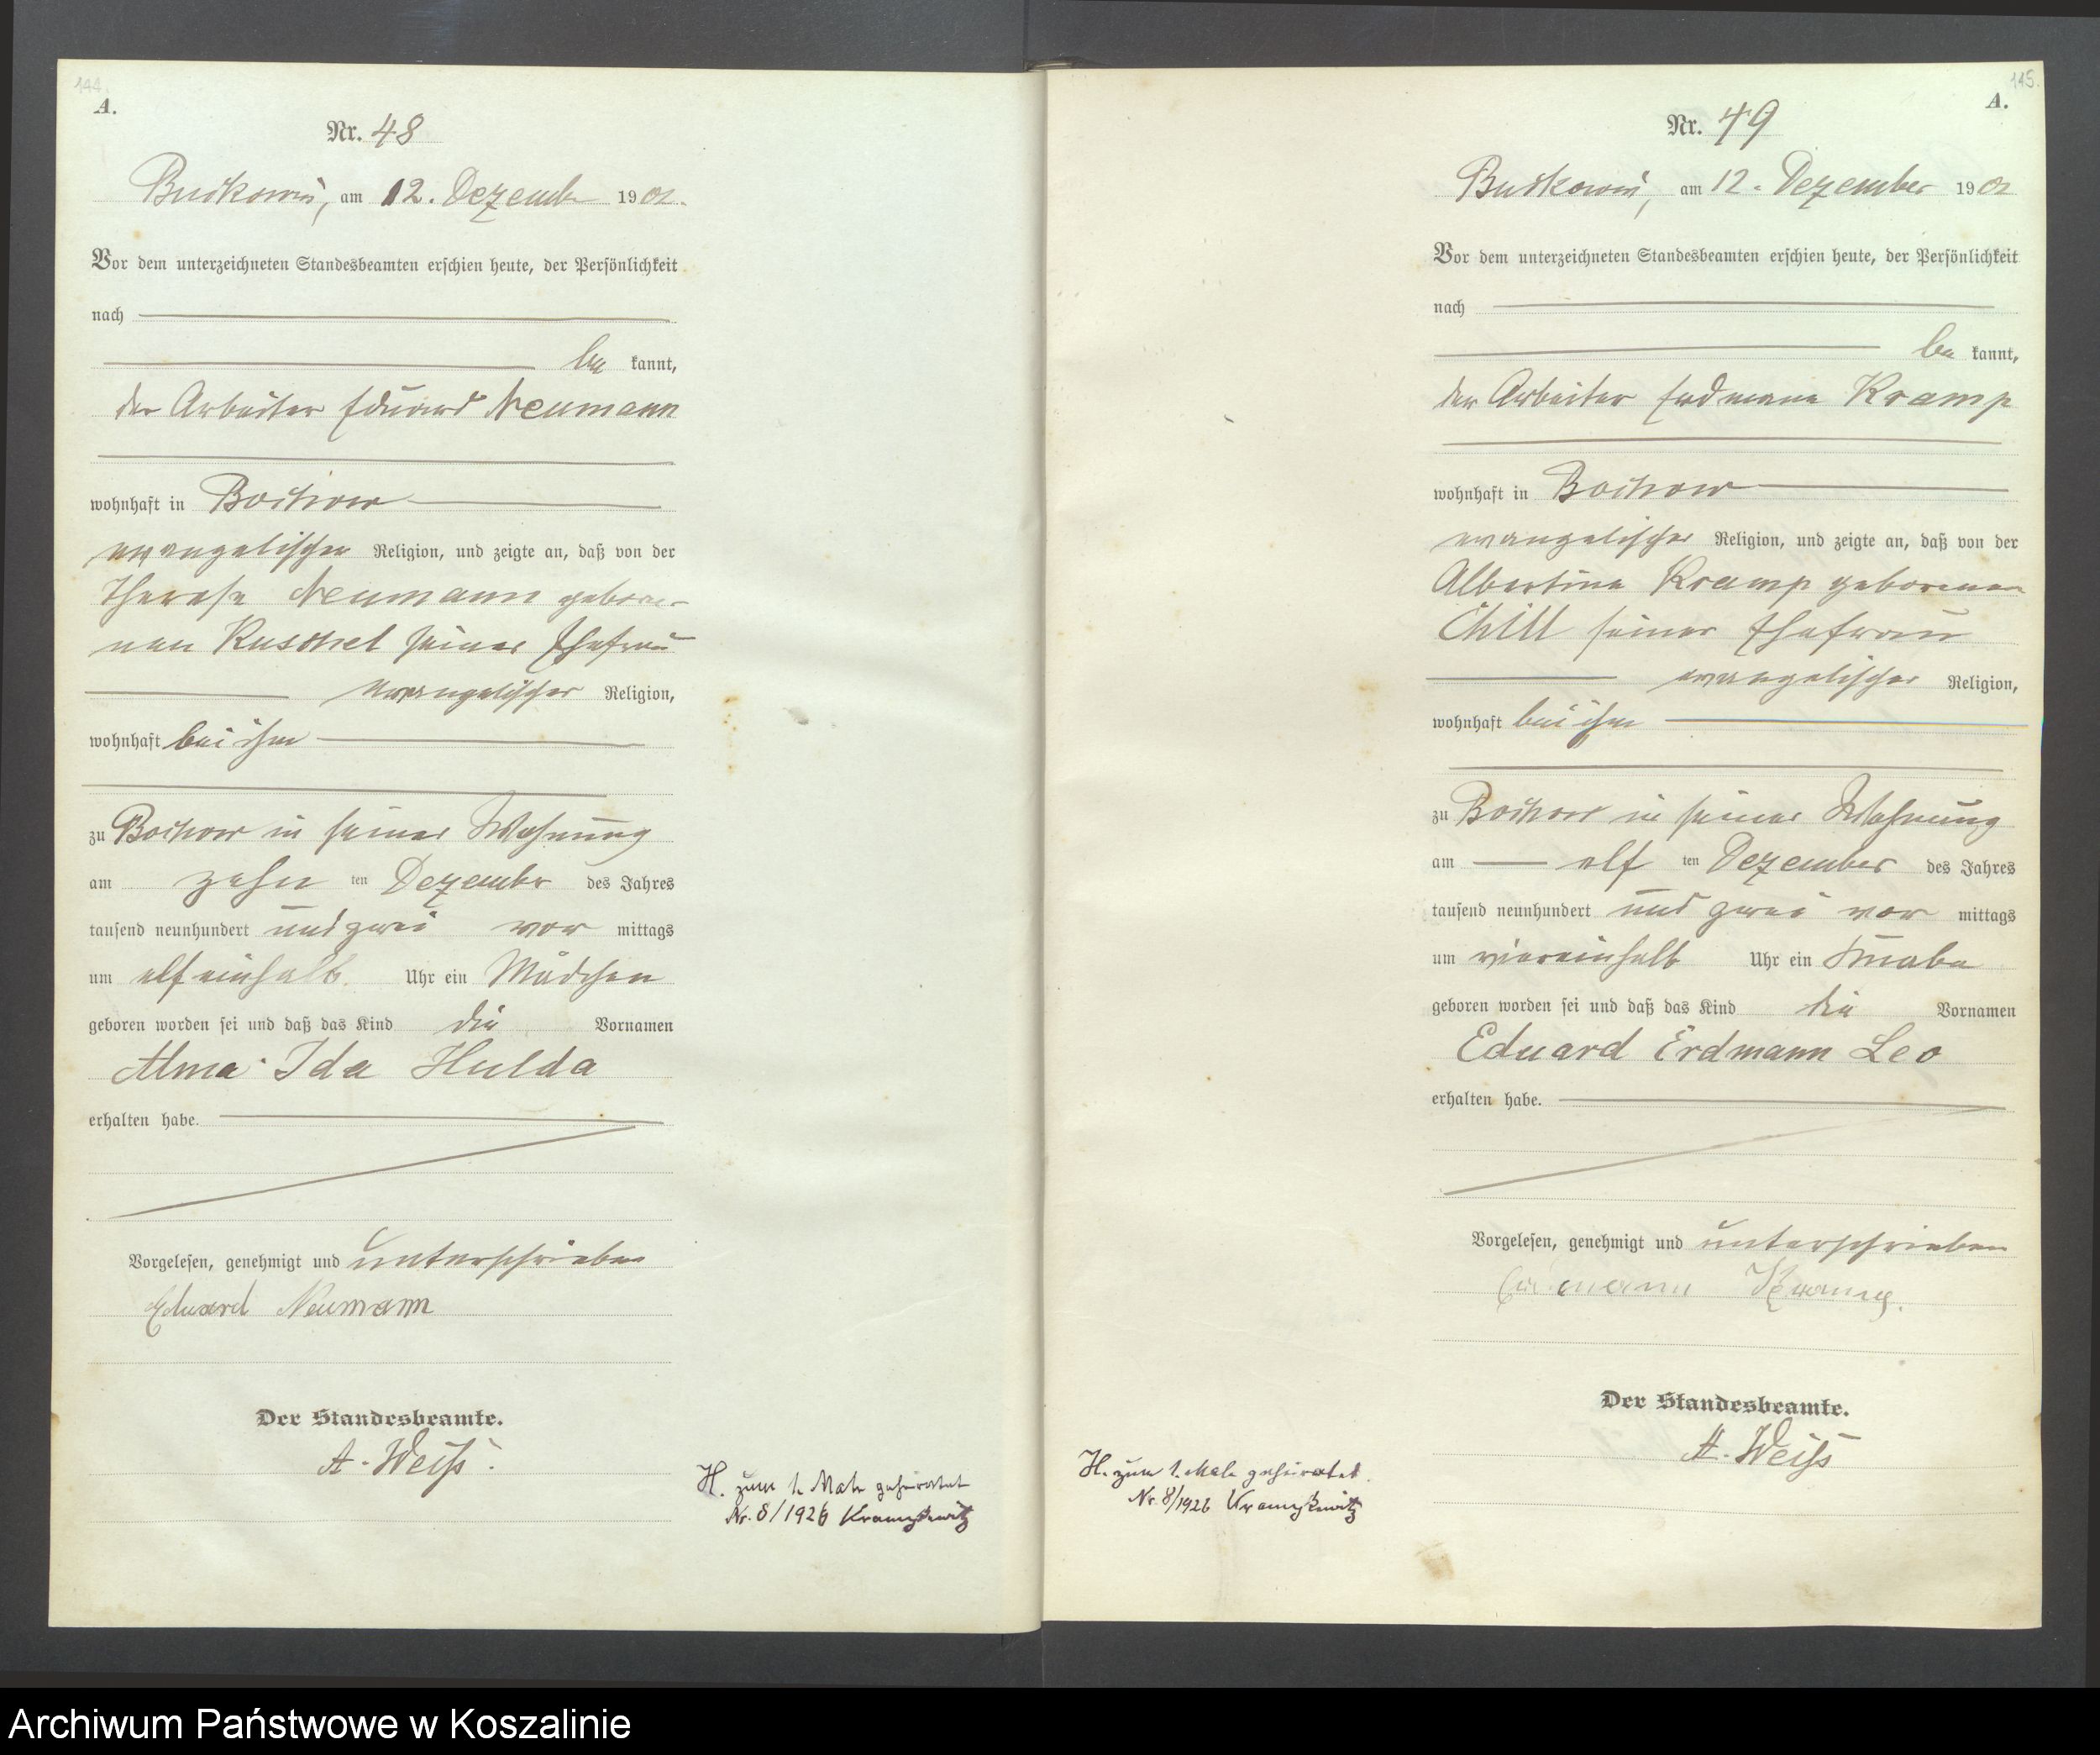 144.
A.
Nr. 48
Buckowin, am 12. Dezember 1902.
Vor dem unterzeichneten Standesbeamten erschien heute, der Persönlichkeit
nach
be kannt,
der Arbeiter Eduard Neumann
wohnhaft in Bochow
evangelischer Religion, und zeigte an, daß von der
Therese Neumann gebore-
nen Kuschel seiner Ehefrau
evangelischer Religion,
wohnhaft bei ihm
zu Bochow in seiner Wohnung
am zehn ten Dezember des Jahres
tausend neunhundert und zwei vor mittags
um elf einhalb Uhr ein Mädchen
geboren worden sei und daß das Kind die Vornamen
Alma Ida Hulda
erhalten habe.
Vorgelesen, genehmigt und unterschrieben
Eduard Neumann
Der Standesbeamte.
A. Weiß.
H. zum 1. Male geheiratet
Nr. 8/1926
145.
A.
Nr. 49
Buckowin, am 12. Dezember 1902
Vor dem unterzeichneten Standesbeamten erschien heute, der Persönlichkeit
nach
be kannt,
der Arbeiter Erdmann Kramp
wohnhaft in Bochow
evangelischer Religion, und zeigte an, daß von der
Albertine Kramp geborenen
seiner Ehefrau
evangelischer Religion,
wohnhaft bei ihm
zu Bochow in seiner Wohnung
am elf ten Dezember des Jahres
tausend neunhundert und zwei vor mittags
um viereinhalb Uhr ein Knabe
geboren worden sei und daß das Kind die Vornamen
Eduard Erdmann Leo
erhalten habe.
Vorgelesen, genehmigt und unterschrieben
Erdmann Kramp.
Der Standesbeamte.
A. Weiß
H. zum 1. Male geheiratet.
Nr. 8/1926
Archiwum Państwowe w Koszalinie